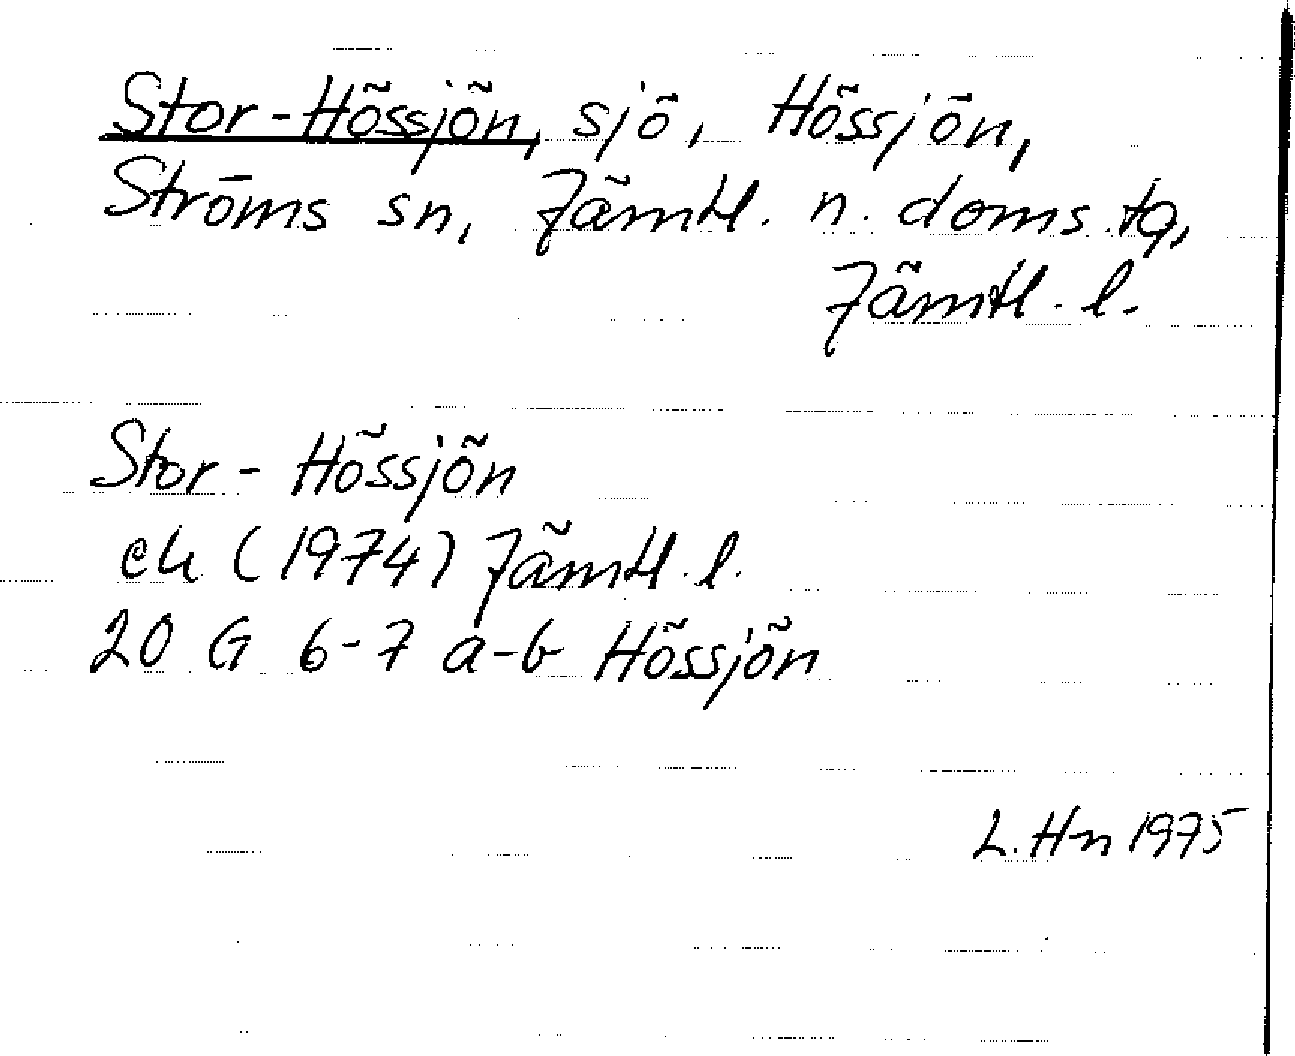 Stor-Hössjön, sjö, Hössjön,
Ströms sn, Jämtl. n. doms.tg,
Jämtl. l.
Stor-Hössjön
ek (1974) Jämtl. l.
20 G 6-7 a-b Hössjön
L. Hn 1975